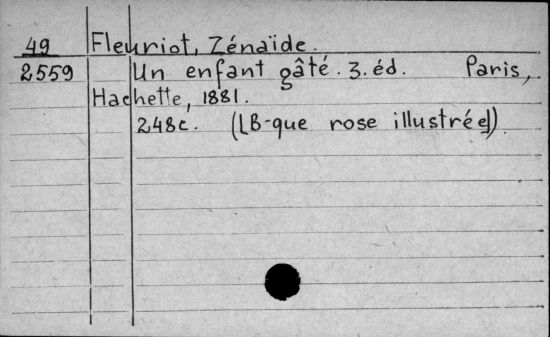 49 Fleuriot, Zénaïde.
2559 Un enfant gâté. 3. éd. Paris,
Hachette, 1881.
248c. ([B-que rose illustrée])